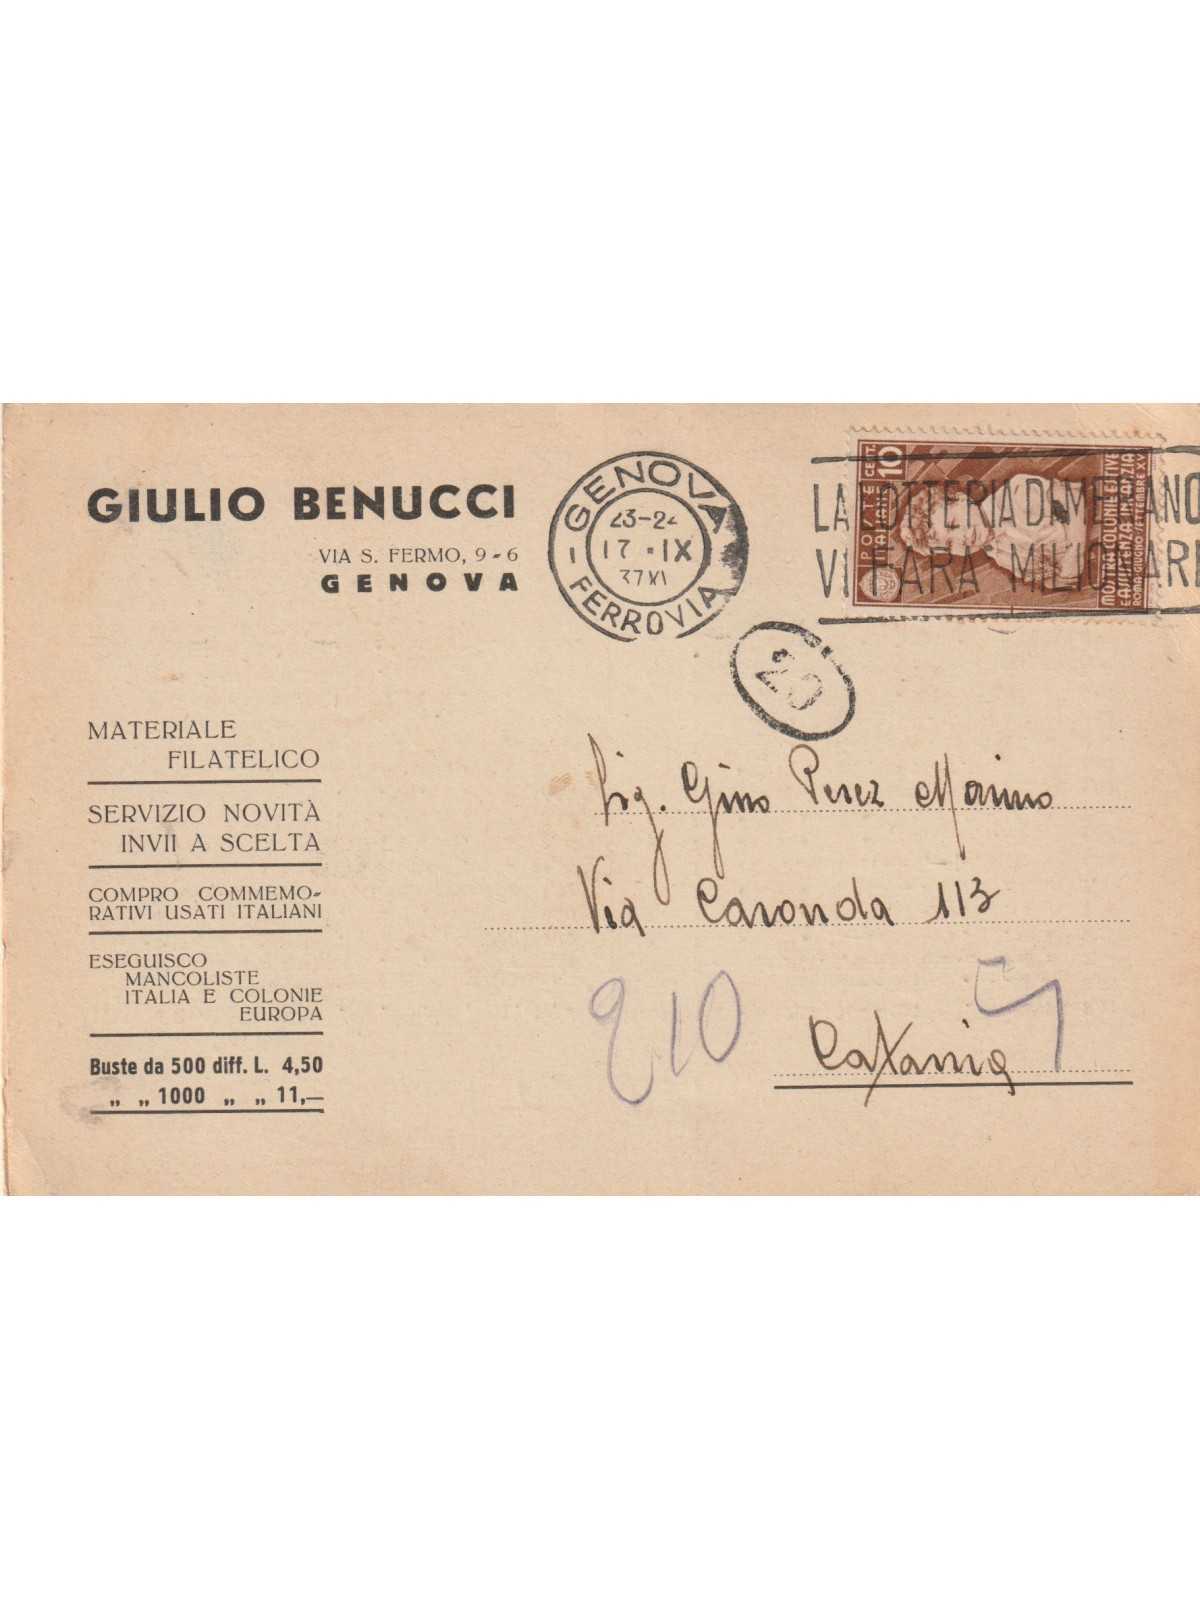 GIULIO BENUCCI
VIA S. FERMO, 9-6
GENOVA
GENOVA
23-24
17·IX
37XV
FERROVIA
LA LOTTERIA DI MERANO
VI FARÀ MILIONARI
POSTE
ITALIANE
CENT.
10
MOSTRA COLONIE ESTIVE
E ASSISTENZA INFANZIA
ROMA·GIUGNO·SETTEMBRE XV
20
MATERIALE
FILATELICO
SERVIZIO NOVITÀ
INVII A SCELTA
COMPRO COMMEMO-
RATIVI USATI ITALIANI
ESEGUISCO
MANCOLISTE
ITALIA E COLONIE
EUROPA
Buste da 500 diff. L. 4,50
„ „ 1000 „ „ 11,—
Sig. Gino Perez Marino
Via Caronda 113
Catania
210